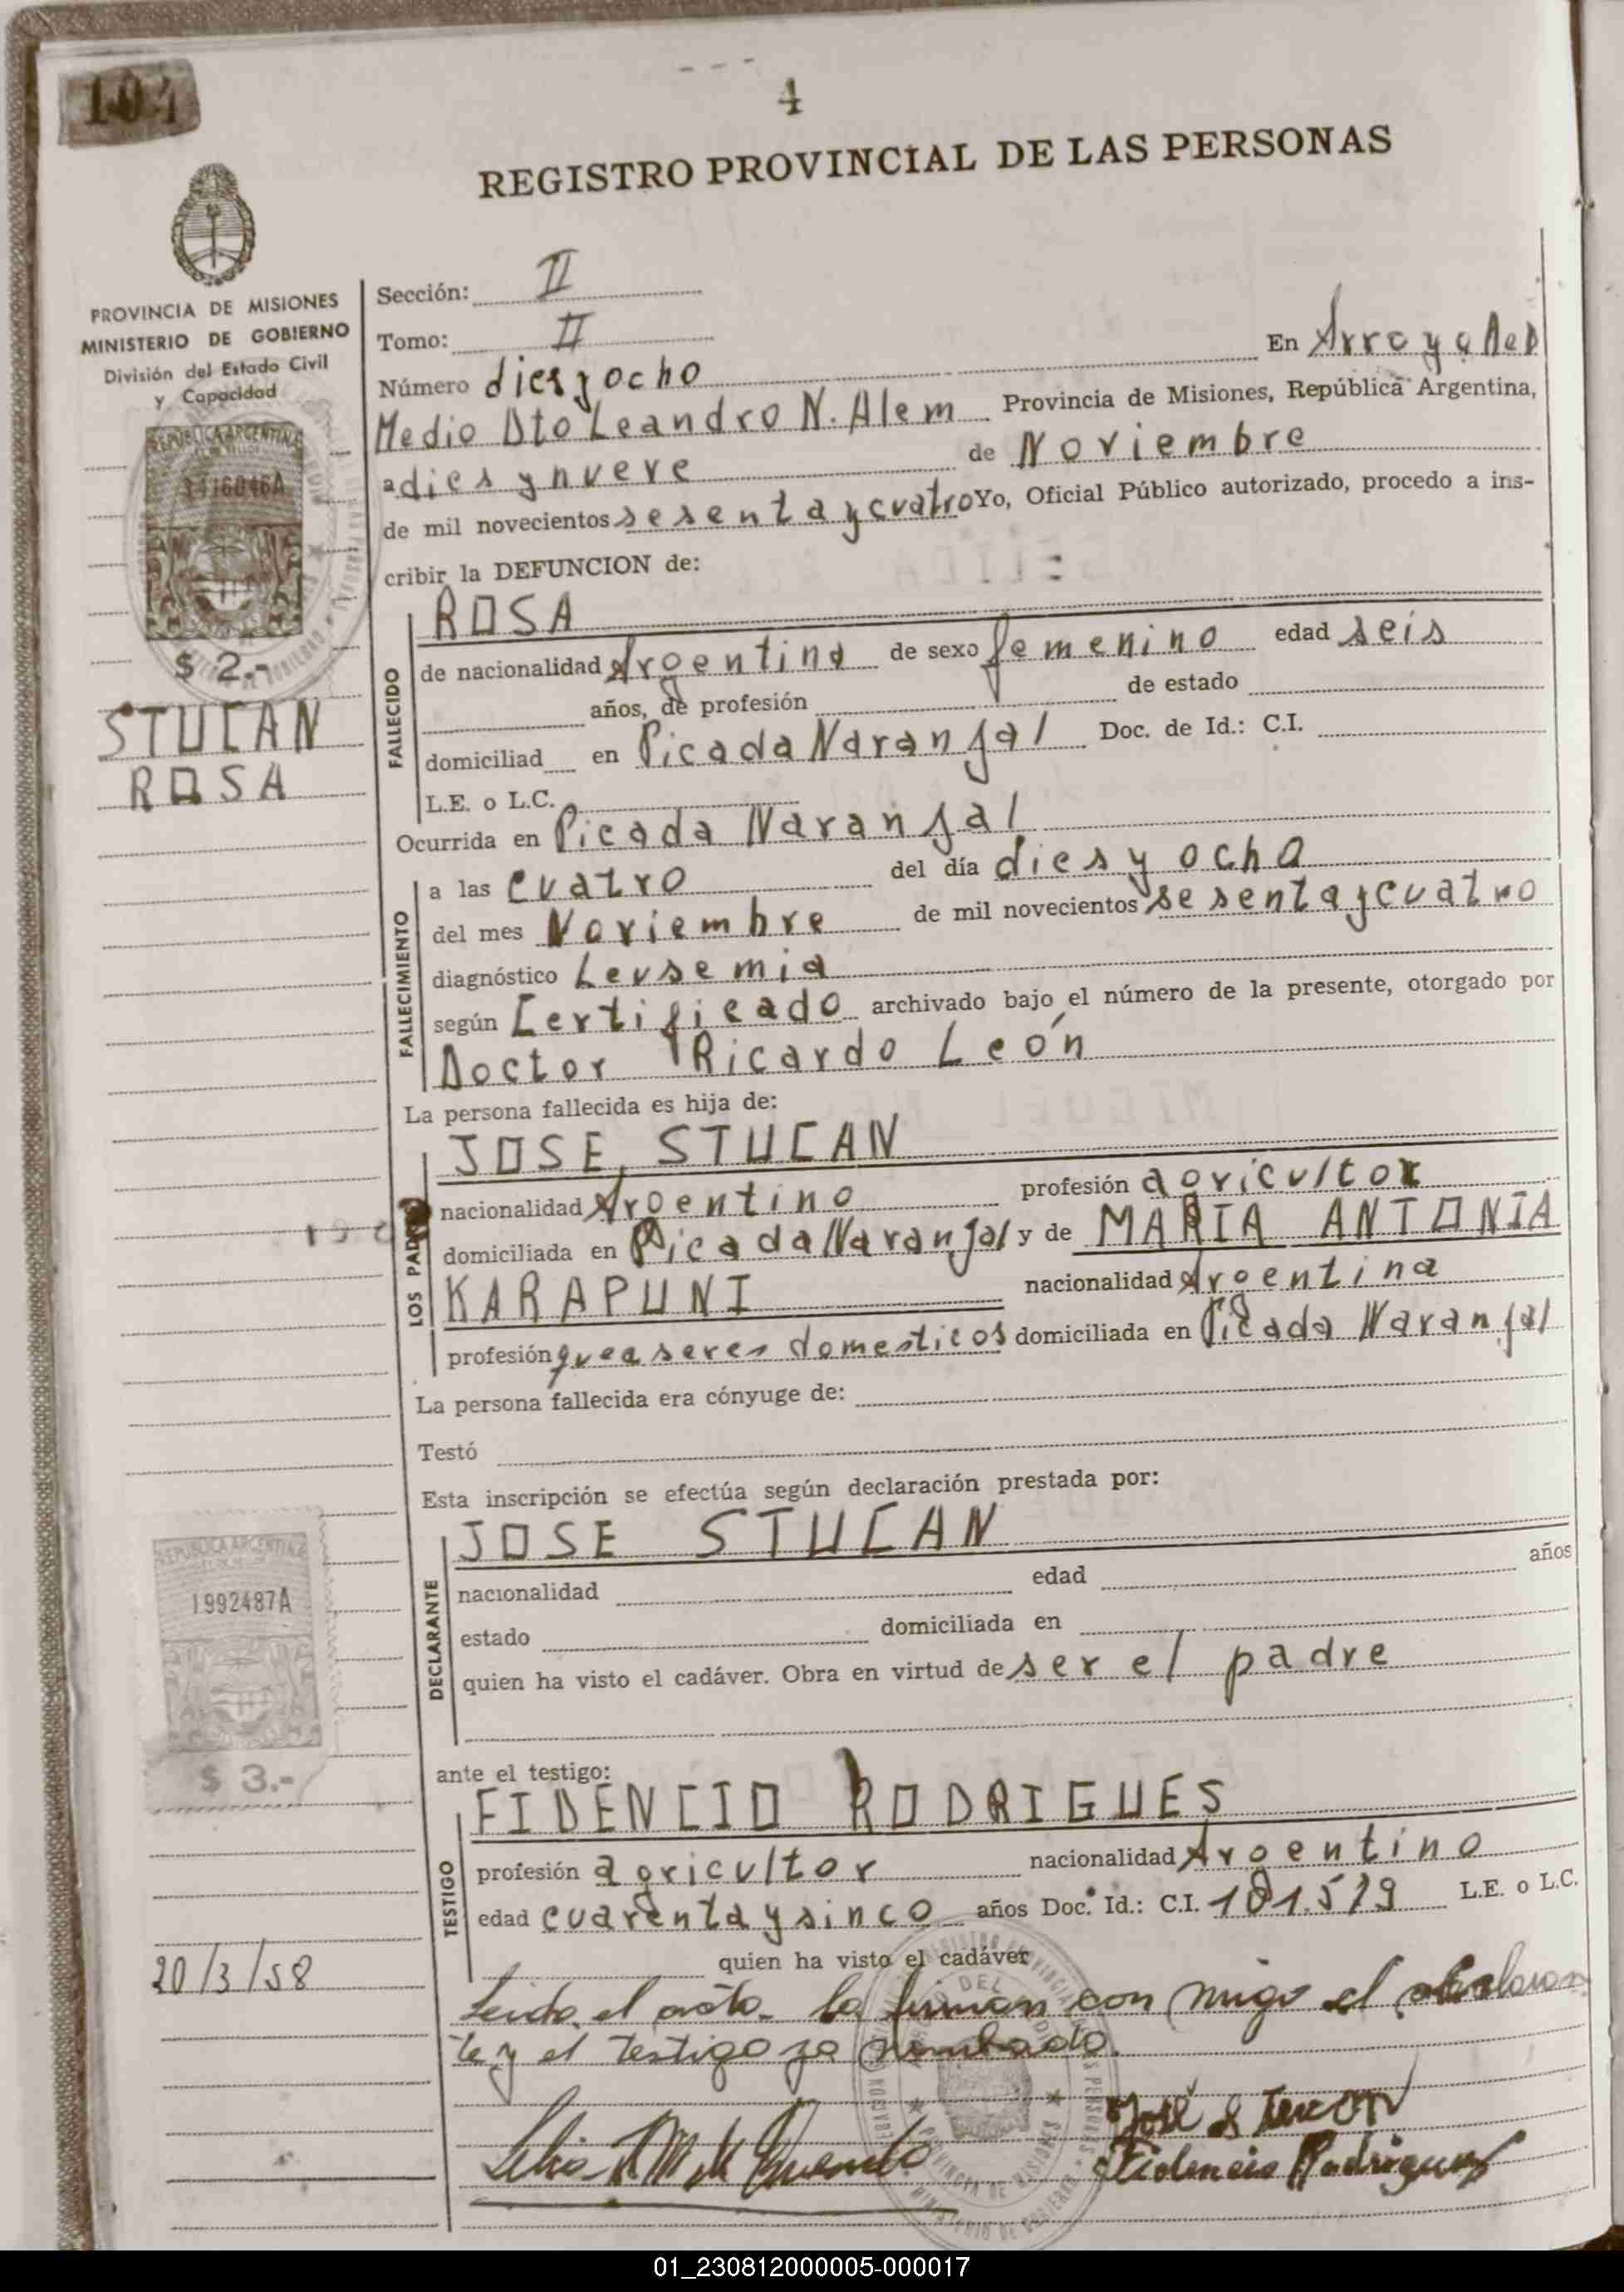 104
4
REGISTRO PROVINCIAL DE LAS PERSONAS
PROVINCIA DE MISIONES
MINISTERIO DE GOBIERNO
División del Estado Civil
y Capacidad
REPUBLICA ARGENTINA
$ 2.-
STUCAN
ROSA
Sección: II
Tomo: II
Número dies y ocho En Arroyo del
Medio Dto Leandro N. Alem Provincia de Misiones, República Argentina,
a dies y nueve de Noviembre
de mil novecientos sesenta y cuatro Yo, Oficial Público autorizado, procedo a ins-
cribir la DEFUNCION de:
FALLECIDO
ROSA
de nacionalidad Argentina de sexo femenino edad seis
años, de profesión de estado
domiciliad en Picada Naranjal Doc. de Id.: C.I.
L.E. o L.C.
Ocurrida en Picada Naranjal
FALLECIMIENTO
a las cuatro del día dies y ocho
del mes Noviembre de mil novecientos sesenta y cuatro
diagnóstico Leusemia
según Certificado archivado bajo el número de la presente, otorgado por
Doctor Ricardo León
La persona fallecida es hija de:
LOS PADRES
JOSE STUCAN
nacionalidad Argentino profesión agricultor
domiciliada en Picada Naranjal y de MARIA ANTONIA
KARAPUNI nacionalidad Argentina
profesión queaseres domesticos domiciliada en Picada Naranjal
La persona fallecida era cónyuge de:
Testó
Esta inscripción se efectúa según declaración prestada por:
DECLARANTE
JOSE STUCAN
nacionalidad edad años
estado domiciliada en
quien ha visto el cadáver. Obra en virtud de ser el padre
REPUBLICA ARGENTINA
1992487A
$ 3.-
ante el testigo:
TESTIGO
FIDENCIO RODRIGUES
profesión agricultor nacionalidad Argentino
edad cuarenta y sinco años Doc. Id.: C.I. 181.579 L.E. o L.C.
quien ha visto el cadáver
20/3/58
Leida el acta la firman con migo el declaran
te y el testigo ya nombrado.
José Stucan
Fidencio Rodrigues
01_230812000005-000017